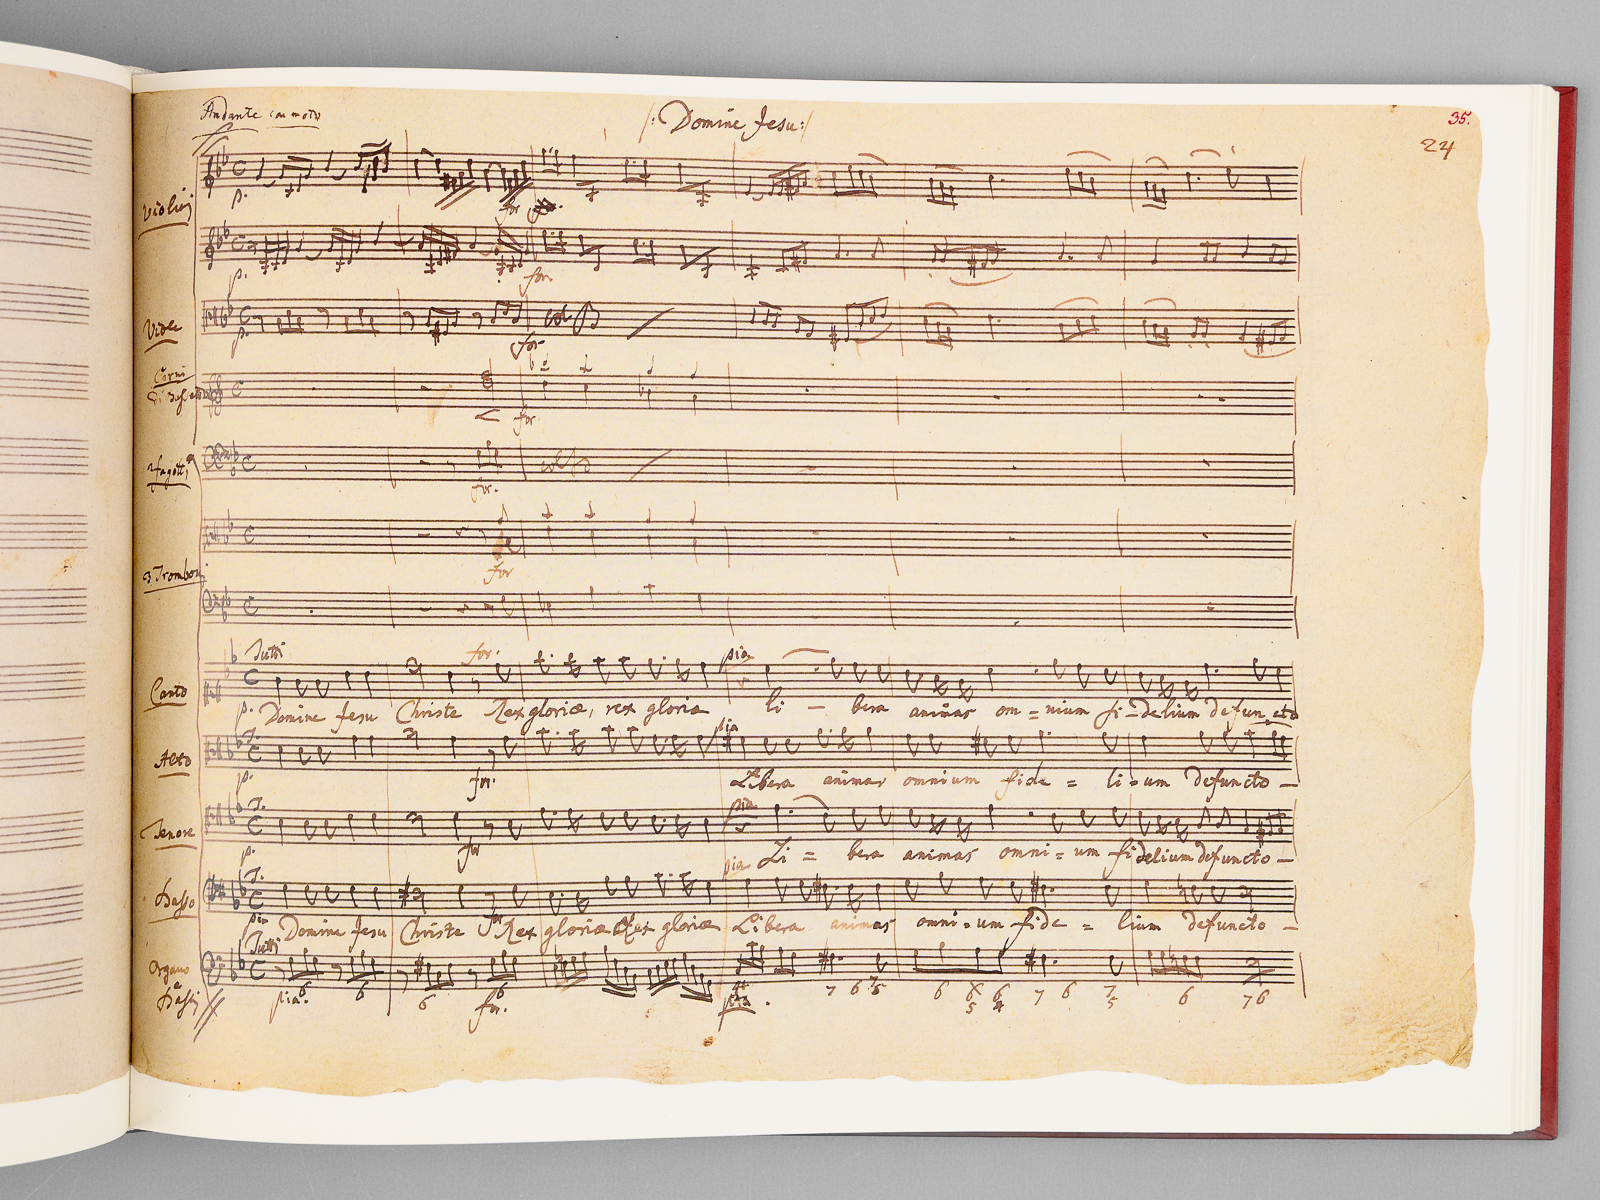 Andante con moto
/: Domine Jesu :/
35.
24
Violini
p.
for
p.
for.
Viole
p.
for.
col B
Corni
di Bassetto
for.
2 fagotti
for.
colB
for
3 Tromboni
Tutti
for.
pia
Canto
p. Domine Jesu Christe Rex gloriæ, rex gloriæ li - bera animas om = nium fi = delium defuncto
T.
pia
Alto
p.
for.
Libera animas omnium fide = li = um defuncto -
T.
pia
Tenore
p.
for
pia Li = bera animas omni = um fidelium defuncto -
T.
Basso
pia
for
Domine Jesu Christe Rex gloriæ Rex gloriæ Libera animas omni = um fide = lium defuncto -
Tutti
Organo
e
Bassi
pia.
6 6 6 6
for.
pia.
7 6 7 5 6 6 5 6 4 7 6 7 5 6 7 6